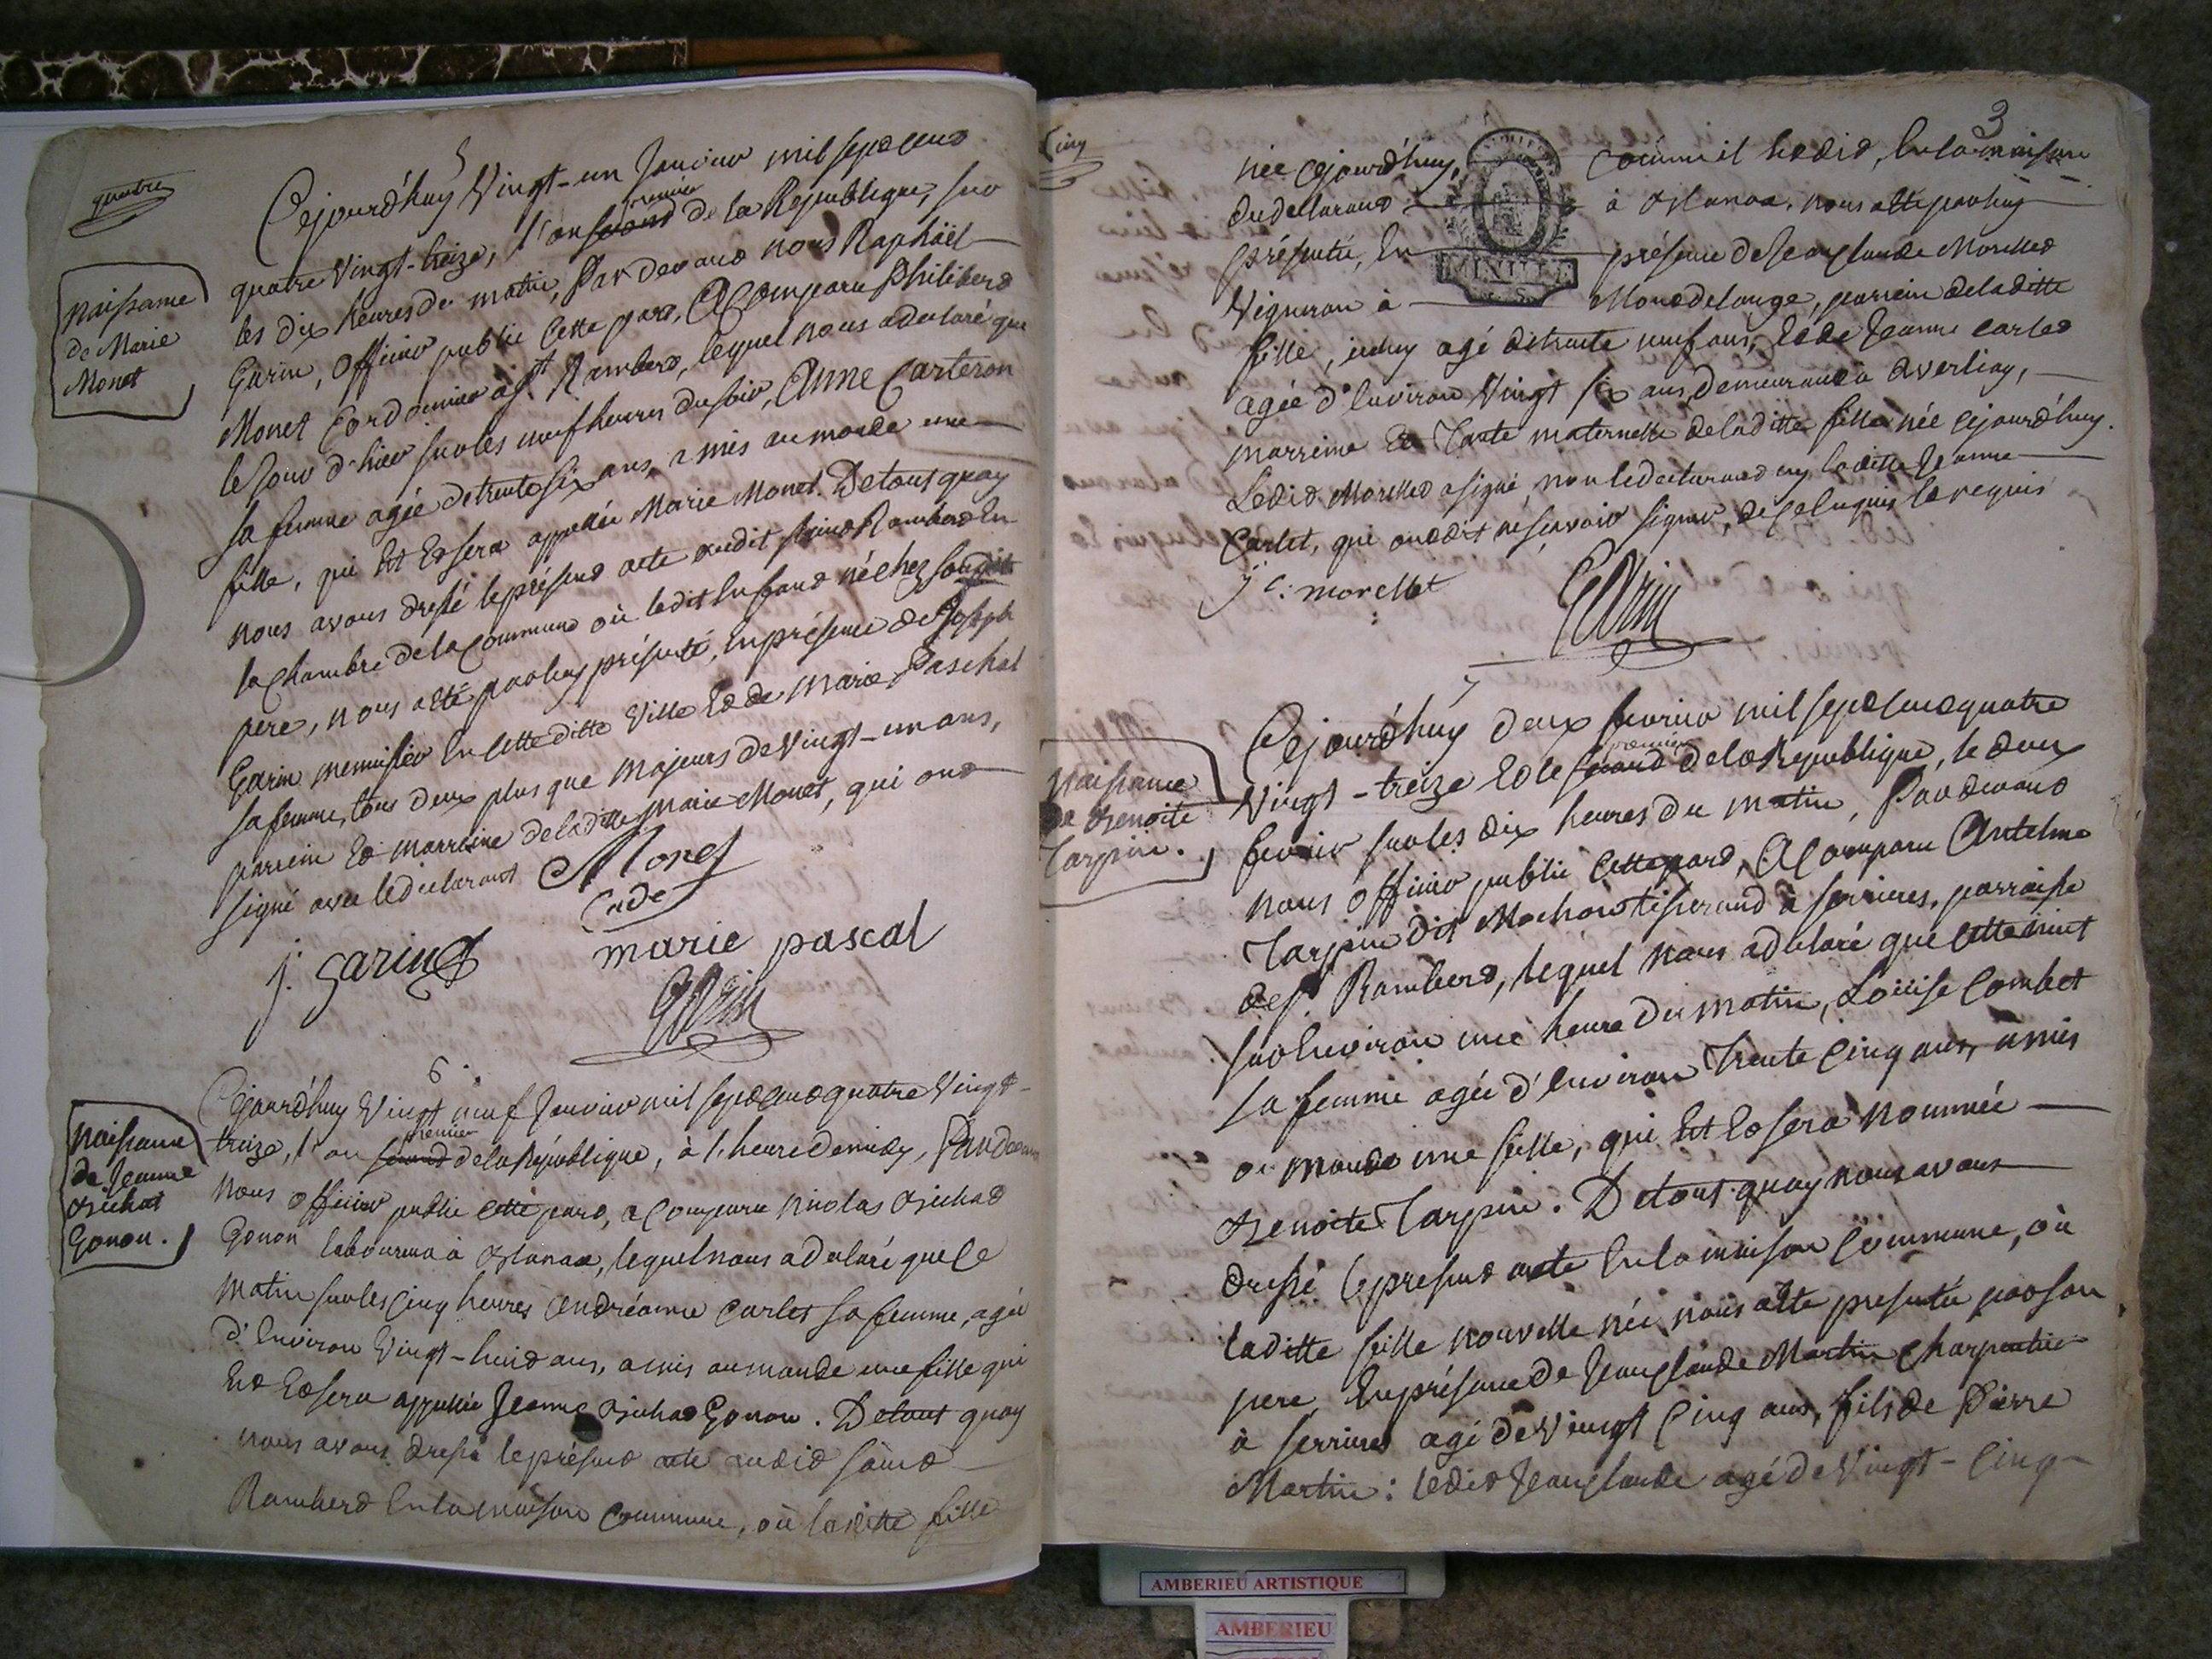 quatre
5
Cejourd'huy Vingt-un Janvier mil sept cent
quatre Vingt-treize, l'an second premier de la République, sur
les dix heures du matin, Pardevant nous Raphaël
Garin, officier public cette part, a Comparu Philibert
Monet Cordonnier à St Rambert, lequel nous a declaré que
le jour d'hier sur les neuf heures du soir, Anne Carteron
sa femme agée de trente six ans, a mis au monde une
fille, qui Est Et sera appellée Marie Monet. De tout quoy
nous avons dressé le présent acte audit saint Rambert En
la Chambre de la Commune où ledit Enfant né chez sondit
pere, nous a Eté par luy présenté, En présence de Joseph
Garin menuisier En Cette ditte Ville Et de Marie Paschal
sa femme, tous deux plus que majeurs de Vingt-un ans,
parrein Et marreine de laditte Marie Monet, qui ont
signé avec le déclarant
Naissance
de Marie
Monet
Monet
Cadet
j. garin
marie pascal
Garin
6.
Cejourd'huy Vingt neuf Janvier mil sept cent quatre Vingt-
treize, l'an second premier de la République, à l'heure de midy, Pardevant
nous officier public cette part, a Comparu Nicolas Bichat
Gonon laboureur à Blanaz, lequel nous a declaré que Ce
matin sur les Cinq heures Andréanne Carlet sa femme, agée
d'Environ Vingt-huit ans, a mis au monde une fille qui
Est Et sera appellée Jeanne Bichat Gonon. De tout quoy
nous avons dressé le présent acte audit saint
Rambert En la maison Commune, où laditte fille
Naissance
de Jeanne
Bichat
Gonon.
Cinq
3
née Cejourd'huy, Comme il Est dit, En la maison
du déclarant à Blanaz. nous a Eté par luy
présenté, En présence de Jean Claude Morellet
Vigneron à Montdelange, parrein de laditte
fille, icelluy agé de trente neuf ans, Et de Jeanne Carlet
agée d'Environ Vingt six ans, demeurant à Averliaz,
marreine Et Tante maternelle de laditte fille née Cejourd'huy.
Ledit Morellet a signé, non le declarant ny laditte Jeanne
Carlet, qui ont dit ne sçavoir signer, de Ce Enquis Et requis
j c: morellet
Garin
7
Cejourd'huy deux fevrier mil sept Cent quatre
Vingt-treize Et le second premier de la République, le deux
fevrier sur les dix heures du matin, Pardevant
nous officier public Cette part, a Comparu Antelme
Tarpin dit Machon tisserand à serrieres, parroisse
de St Rambert, lequel nous a déclaré que Cette nuit
sur Environ une heure du matin, Loüise Combet
sa femme agée d'Environ Trente Cinq ans, a mis
au monde une fille, qui Est Et sera nommée
Benoite Tarpin. De tout quoy nous avons
dressé le present acte En la maison Commune, où
laditte fille nouvelle née, nous a Eté presentée par son
pere En présence de Jean Claude Martin Charpentier
à serrieres agé de Vingt Cinq ans, fils de Pierre
Martin: ledit Jean Claude agé de Vingt-Cinq
Naissance
de Benoite
Tarpin.
AMBERIEU ARTISTIQUE
AMBERIEU